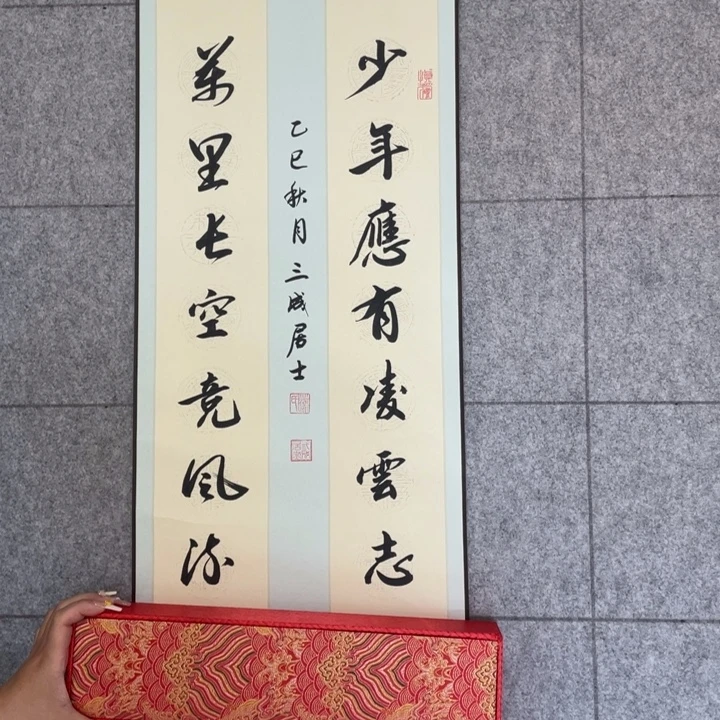 少年應有凌雲志
萬里长空竞风流
乙巳秋月三成居士